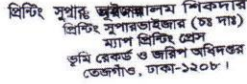 প্রিন্টিং সুপার শিকদার
প্রিন্টিং সুপারভাইজার (চঃ দাঃ)
ম্যাপ প্রিন্টিং প্রেস
ভূমি রেকর্ড ও জরিপ অধিদপ্তর
তেজগাঁও, ঢাকা-১২০৮।